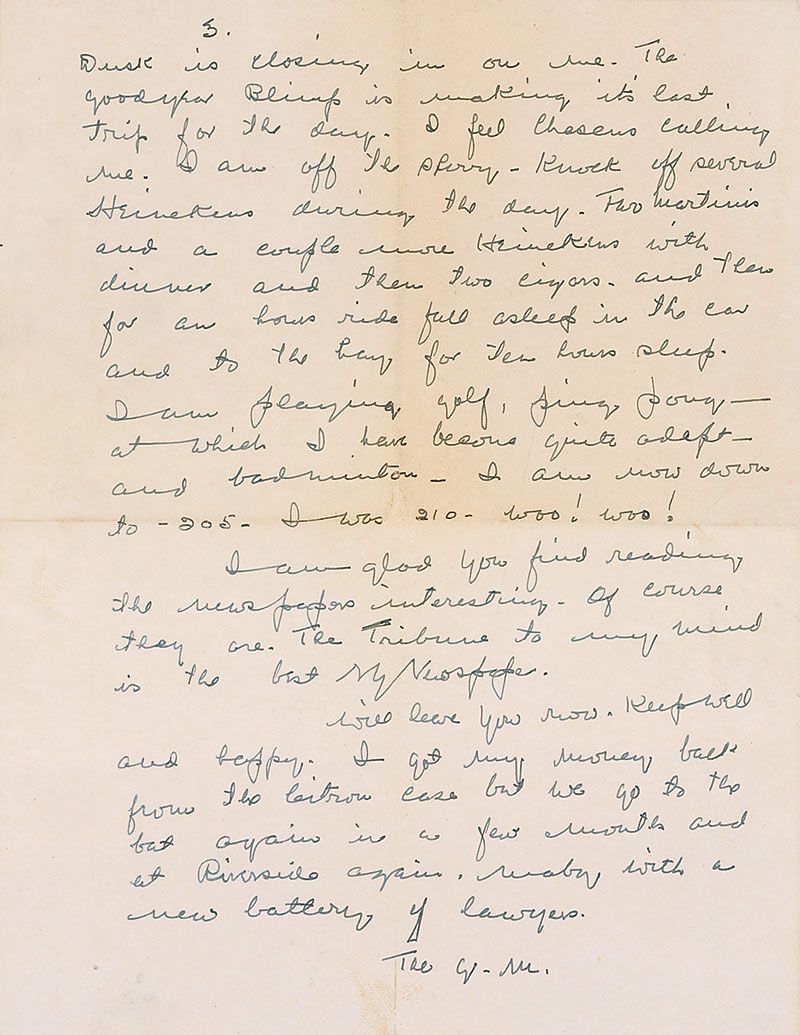 3.
Dusk is closing in on me. The
goodyear Blimp is making it's last
trip for the day. I feel Chasens calling
me. I am off the sherry - Knock off several
Heinekens during the day. Two Martinis
and a couple more Heinekens with
dinner and then two cigars. and then
for an hours ride fall asleep in the car
and to the hay for ten hours sleep.
I am playing golf, ping pong —
at which I have become quite adept —
and badminton — I am now down
to - 205 - I was 210 - woo! woo!
I am glad you find reading
the newspapers interesting. Of course
they are. The Tribune to my mind
is the best NY Newspaper.
Will leave you now. Keep well
and happy. I got my money back
from the case but we go to the
bat again in a few months and
at Riverside again. Maby with a
new battery of lawyers.
The G-M.